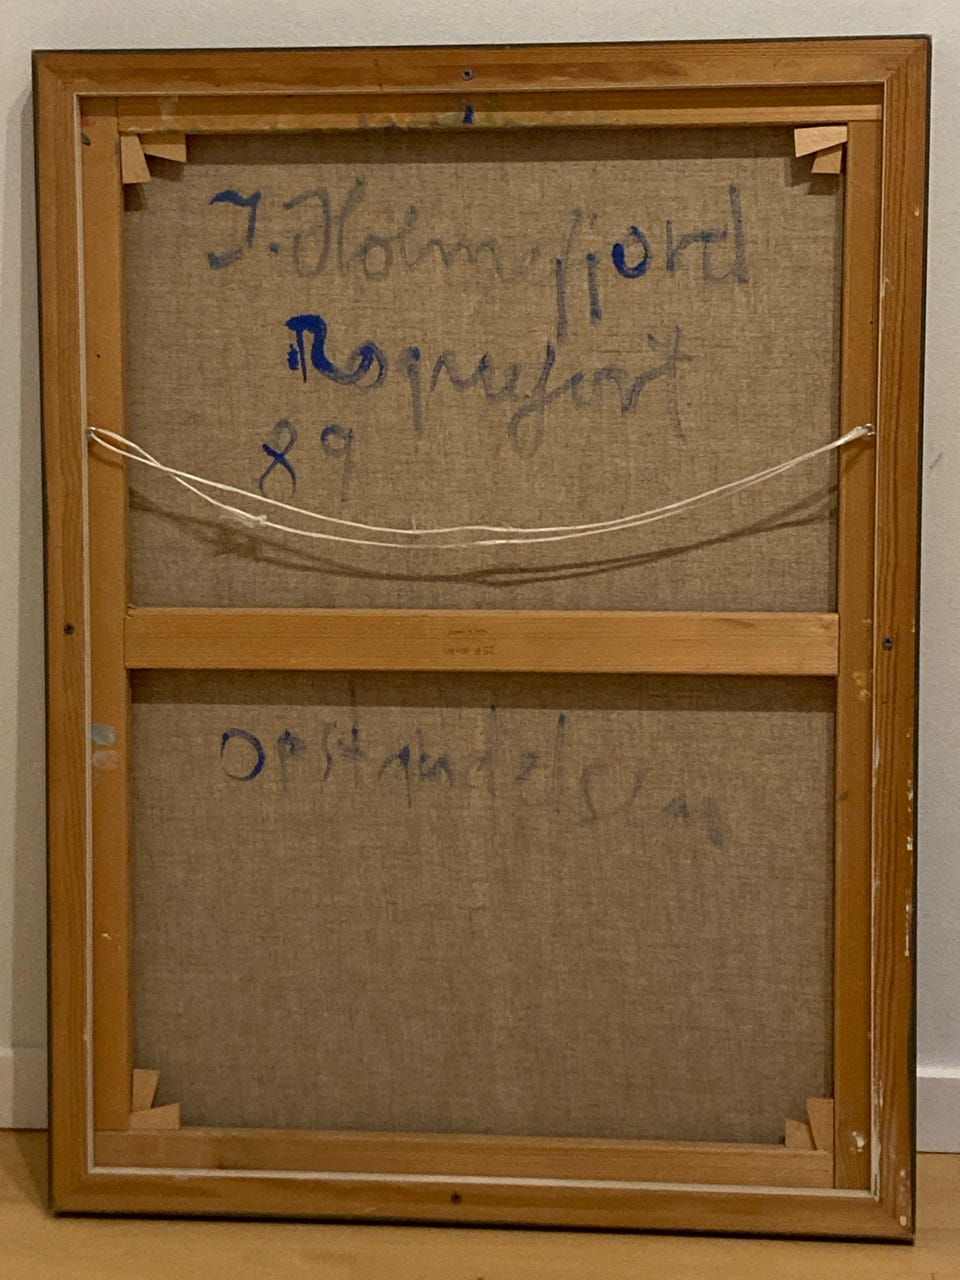 J. Holmefjord
Roquefort
89
25 P
Opstandelsen